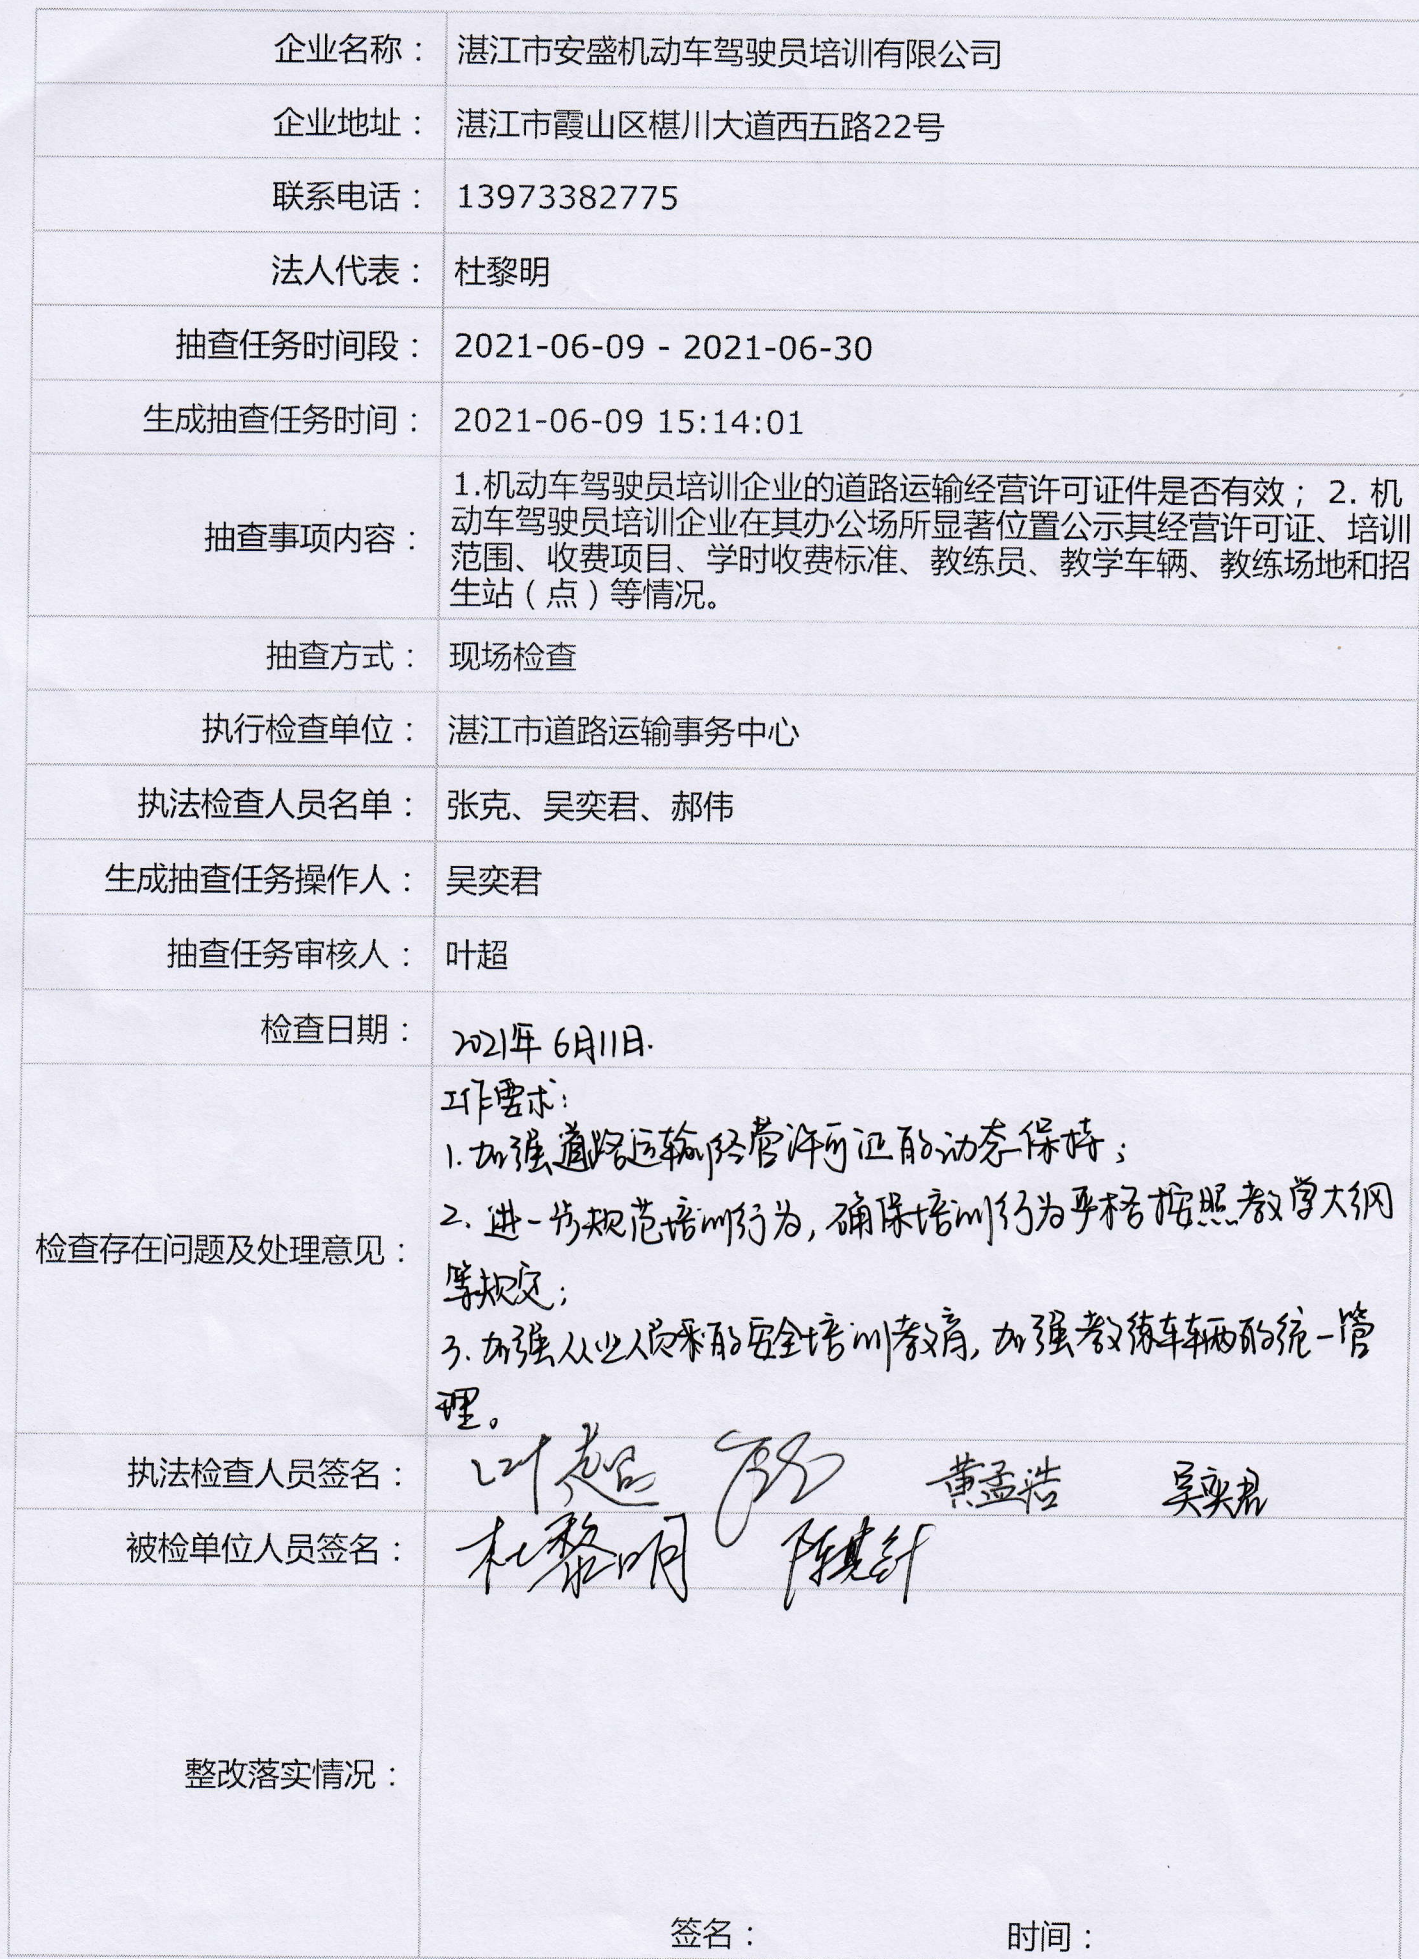 企业名称： 湛江市安盛机动车驾驶员培训有限公司
企业地址： 湛江市霞山区椹川大道西五路22号
联系电话： 13973382775
法人代表： 杜黎明
抽查任务时间段： 2021-06-09 - 2021-06-30
生成抽查任务时间： 2021-06-09 15:14:01
抽查事项内容：
1.机动车驾驶员培训企业的道路运输经营许可证件是否有效； 2. 机
动车驾驶员培训企业在其办公场所显著位置公示其经营许可证、培训
范围、收费项目、学时收费标准、教练员、教学车辆、教练场地和招
生站（点）等情况。
抽查方式： 现场检查
执行检查单位： 湛江市道路运输事务中心
执法检查人员名单： 张克、吴奕君、郝伟
生成抽查任务操作人： 吴奕君
抽查任务审核人： 叶超
检查日期： 2021年6月11日.
检查存在问题及处理意见：
工作要求：
1.加强道路运输经营许可证的动态保持；
2、进一步规范培训行为，确保培训行为严格按照教学大纲
等规定；
3.加强从业人员的安全培训教育，加强教练车辆的统一管
理。
执法检查人员签名： 叶超 黄孟浩 吴奕君
被检单位人员签名： 杜黎明
整改落实情况：
签名： 时间：